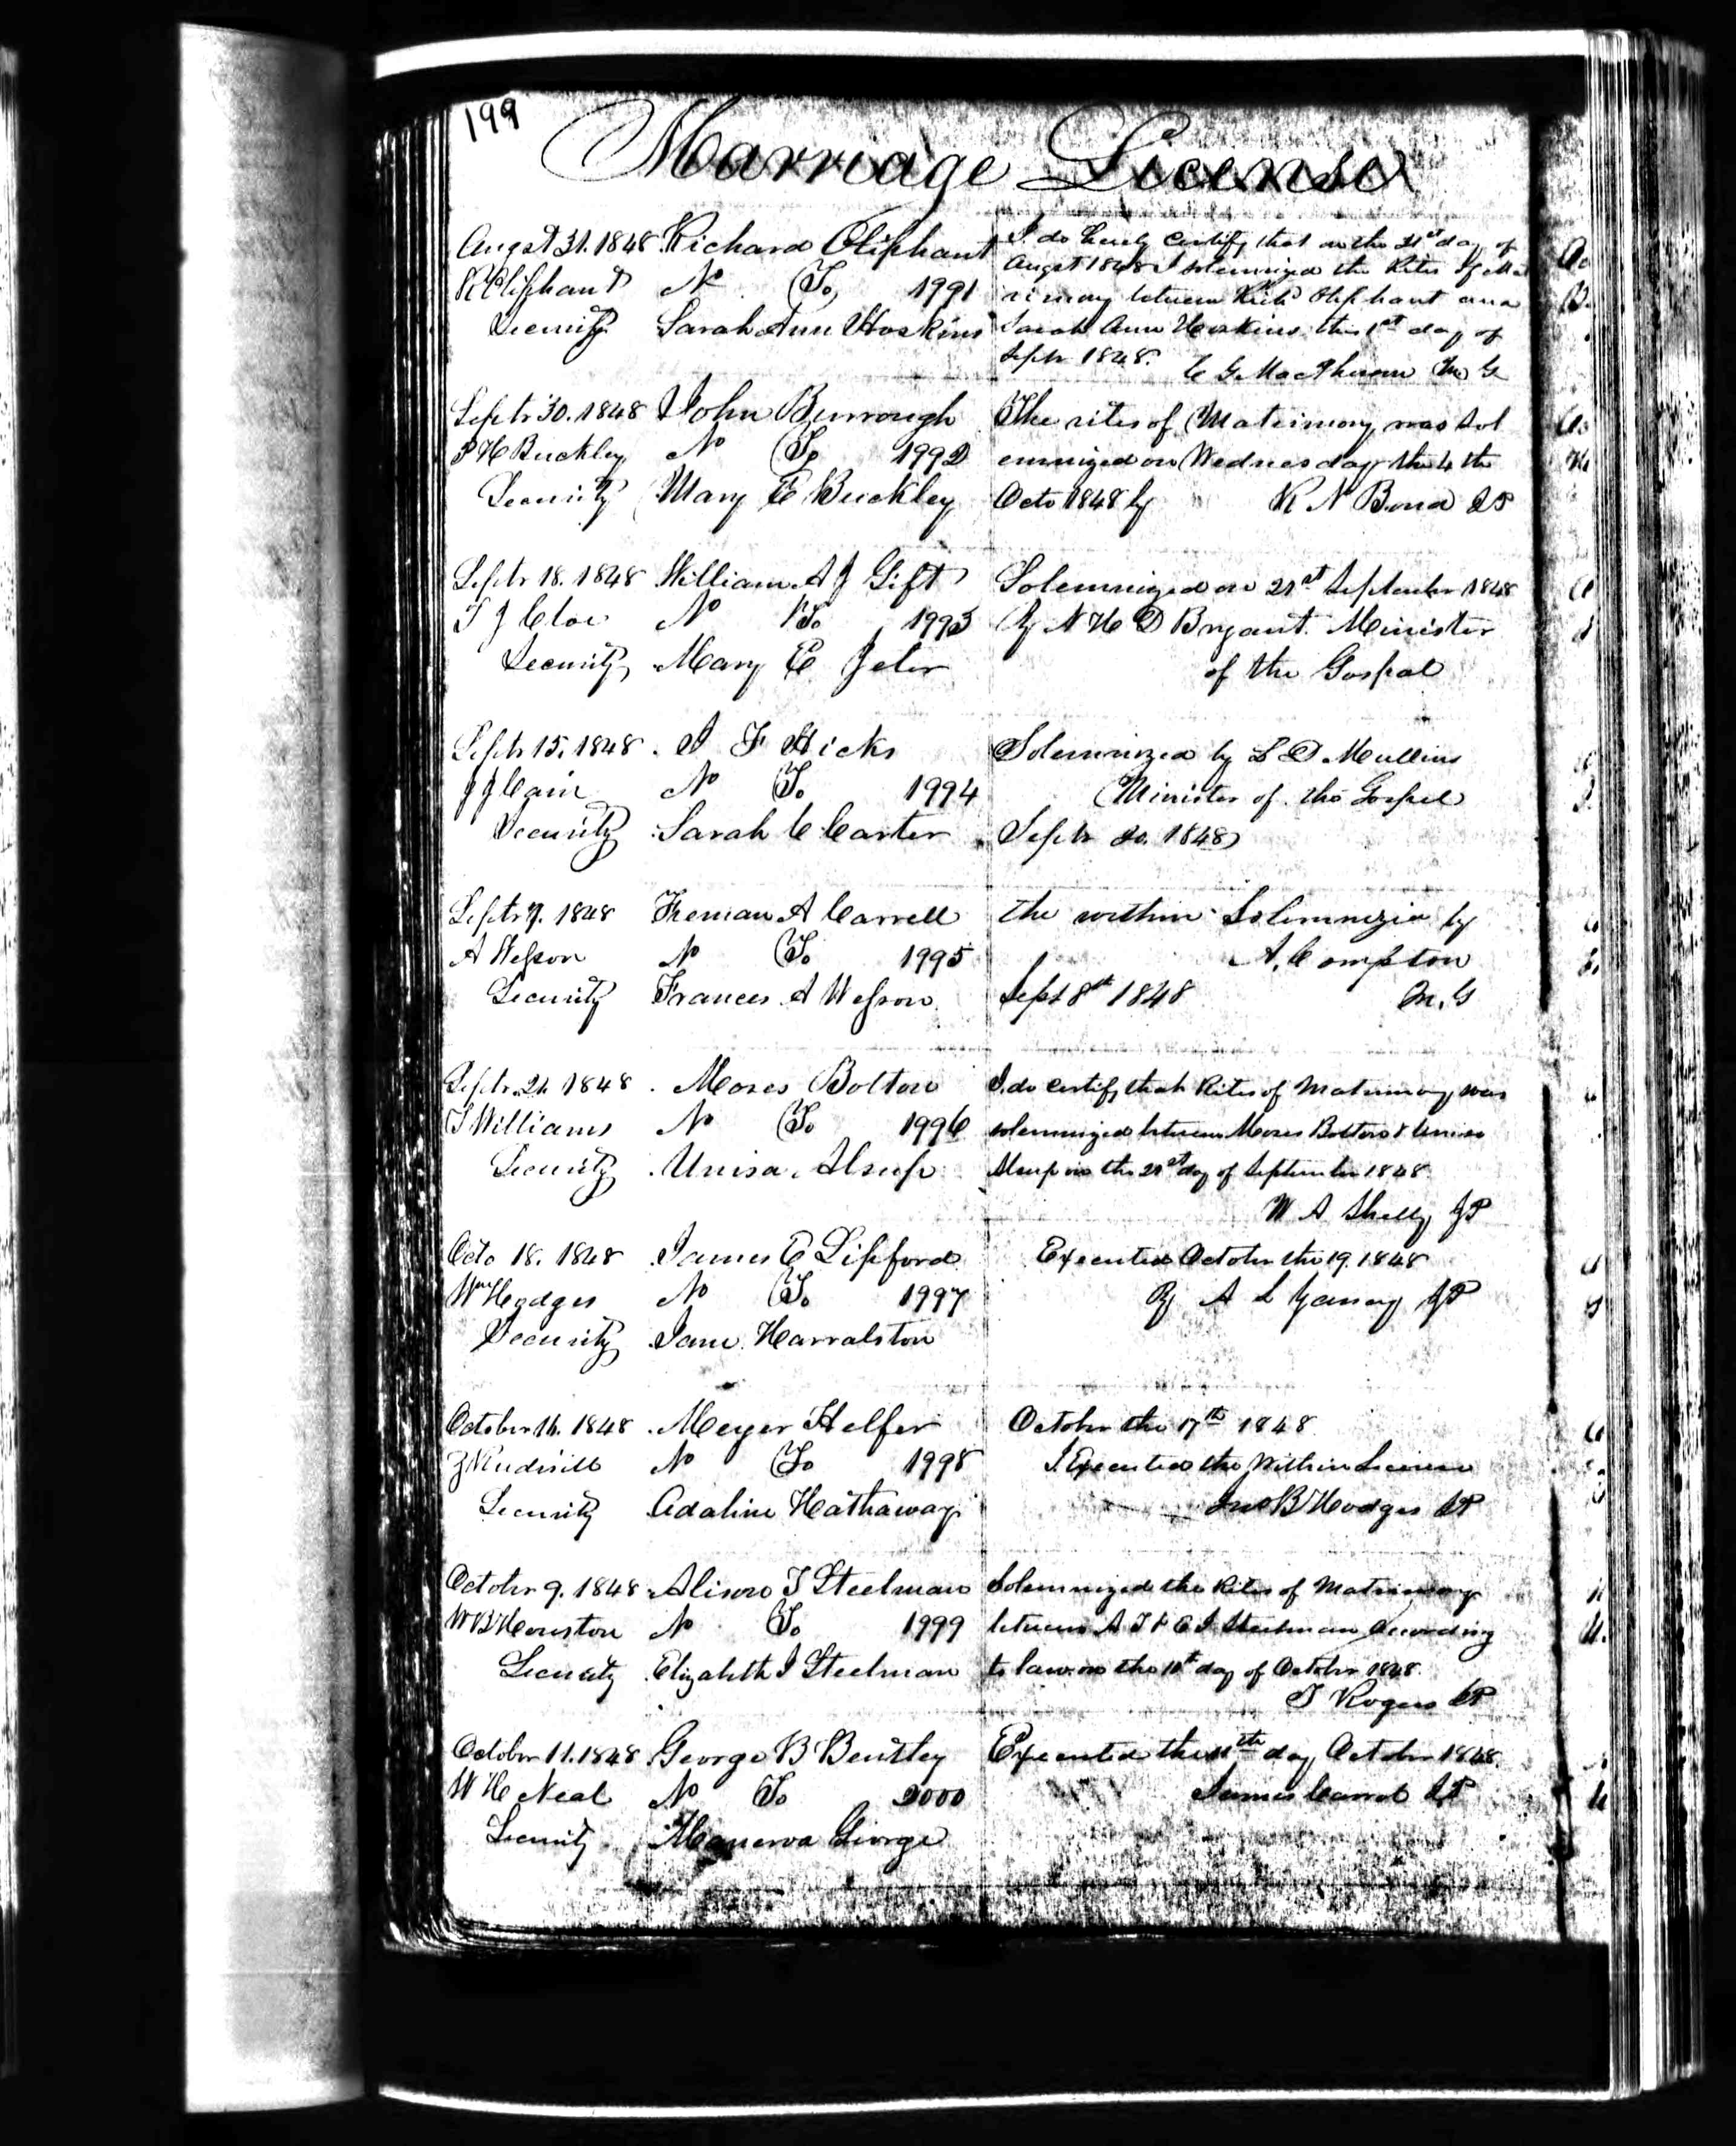 199
Marriage License
August 31. 1848 Richard Oliphant I do hereby certify that on the 31st day of
R Oliphant No To 1991 August 1848 I solemnized the Rites of Mat
Security Sarah Ann Hoskins rimony between Richd Oliphant and
Sarah Ann Hoskins this 1st day of
Septr 1848. C G MacPherson M G
Septr 30. 1848 John Burrough The rites of Matrimony was Sol
P H Buckley No To 1992 emnized on Wednesday the 4 the
Security Mary E Buckley Octo 1848 by R N Bond JP
Septr 18. 1848 William A J Gift Solemnized on 21st September 1848
T J Cloe No To 1993 By N H D Bryant. Minister
Security Mary E Jeter of the Gospal
Septr 15. 1848. I F Hicks Solemnized by L D Mullins
J J Cain No To 1994 Minister of the Gospel
Security Sarah C Carter Septr 20. 1848
Septr 7. 1848 Freman A Carrell the within Solemnized by
A Wesson No To 1995 A. Compton
Security Frances A Wesson Sept 8th 1848 M. G
Septr. 21. 1848. Moses Bolton I do certify that Rites of Matrimony was
T Williams No To 1996 solemnized between Moses Bolton & Unisa
Security Unisa Alsup Alsup on the 21st day of September 1848
W A Shelly JP
Octo 18. 1848 James E Lipford Executed October the 19. 1848
Wm Hodges No To 1997 By A L Yancy JP
Security Jane Harralston
October 16. 1848. Meyer Helfer October the 17th 1848
No To 1998 I Executed the Within License
Security Adaline Hathaway Jno B Hodges JP
October 9. 1848 Alison T Steelman Solemnized the Rites of Matrimony
W B Houston No To 1999 between A T & E J Steelman According
Security Elizabeth J Steelman to law on the 10th day of October 1848
T Rogers JP
October 11. 1848 George B Bentley Executed the 11th day October 1848.
W H Neal No To 2000 James Carrol JP
Security Manerva George